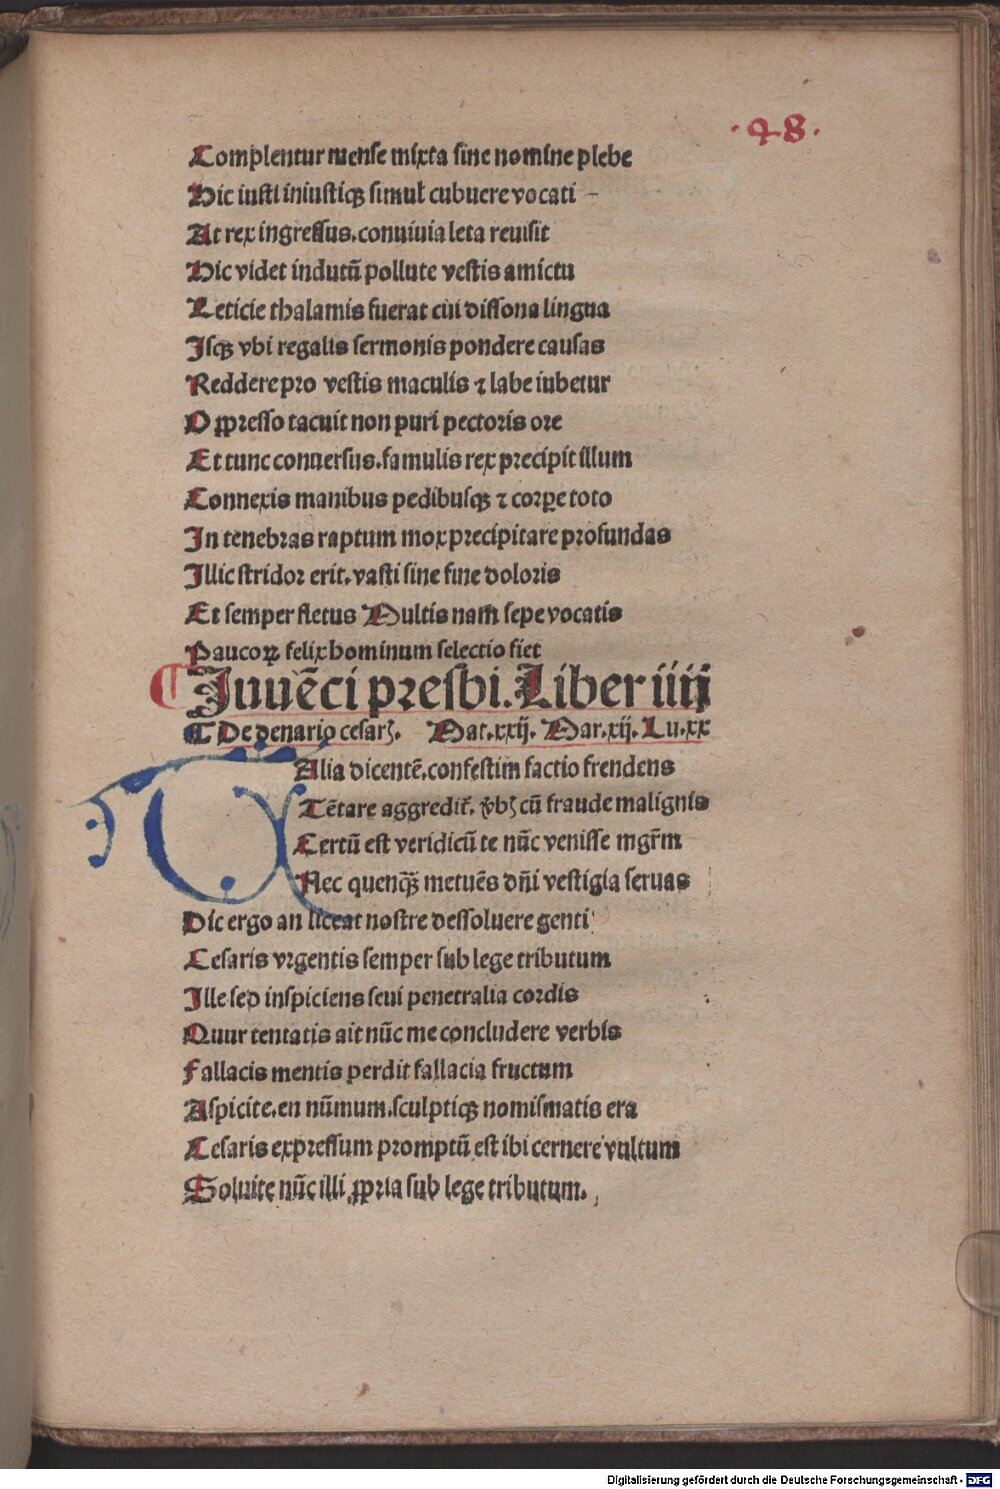 ·48·
Complentur mense mixta sine nomine plebe
Hic iusti iniustiqꝫ simul cubuere vocati
At rex ingressus.conuiuia leta reuisit
Hic videt indutū pollute vestis amictu
Leticie thalamis fuerat cui dissona lingua
Isqꝫ vbi regalis sermonis pondere causas
Reddere pro vestis maculis ⁊ labe iubetur
Oppresso tacuit non puri pectoris ore
Et tunc conuersus.famulis rex precipit illum
Connexis manibus pedibusqꝫ ⁊ corꝑe toto
In tenebras raptum mox precipitare profundas
Illic stridor erit.vasti sine fine doloris
Et semper fletus Multis nam̄ sepe vocatis
Paucoꝝ felix hominum selectio fiet
¶ Juuēci presbi.Liber iiij
¶ De denario cesarꝭ. Mat.xxij. Mar.xij. Lu.xx
TAlia dicentē.confestim factio frendens
Tētare aggredit᷑. v̄bꝭ cū fraude malignis
Certū est veridicū te nūc venisse mgr̄m
Nec quenqꝫ̄ metuēs dn̄i vestigia seruas
Dic ergo an liceat nostre dessoluere genti
Cesaris vrgentis semper sub lege tributum
Ille sed inspiciens seui penetralia cordis
Quur tentatis ait nūc me concludere verbis
Fallacis mentis perdit fallacia fructum
Aspicite.en nūmum.sculptiqꝫ nomismatis era
Cesaris expressum promptū est ibi cernere vultum
Soluite nūc illi ꝓpria sub lege tributum.
Digitalisierung gefördert durch die Deutsche Forschungsgemeinschaft - DFG